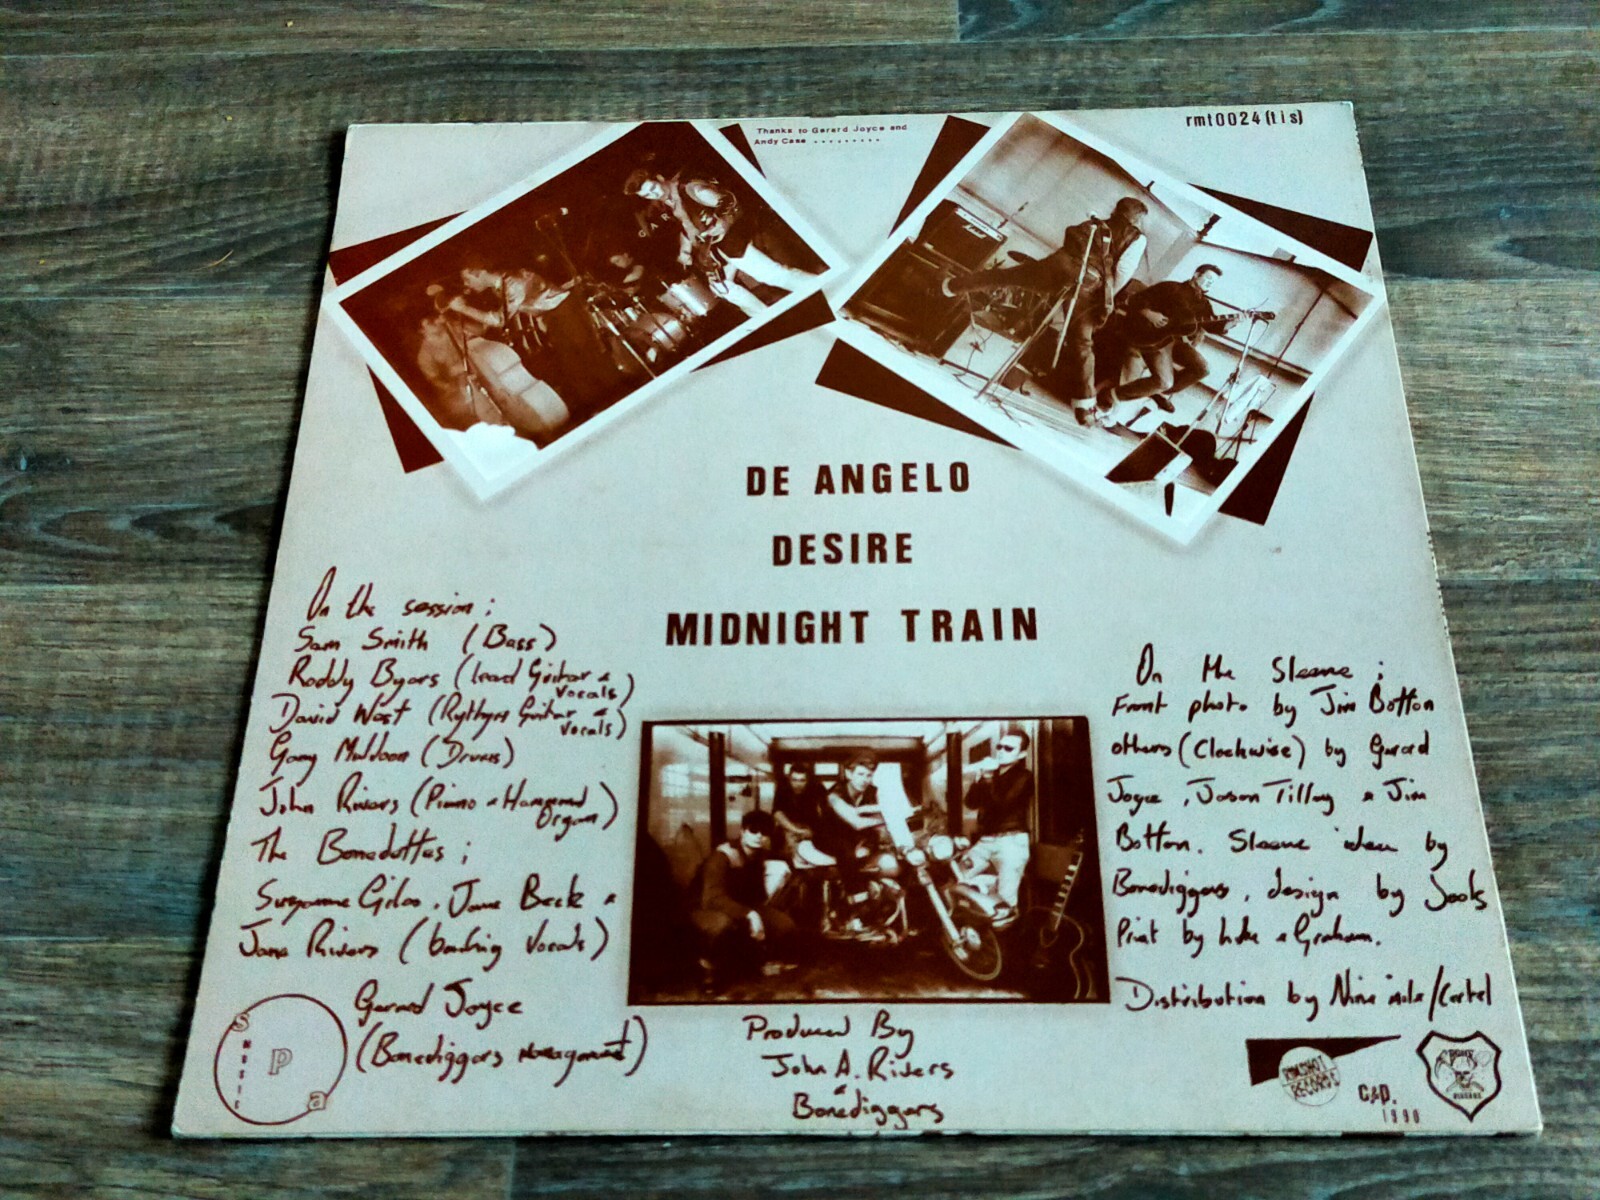 rmt0024(tis)
Thanks to Gerard Joyce and
Andy Case .........
DE ANGELO
DESIRE
MIDNIGHT TRAIN
On the session ;
Sam Smith (Bass)
Roddy Byars (lead Guitar &
vocals)
David West (Rythym Guitar &
vocals)
Gary Muldoon (Drums)
John Rivers (Piano & Hammond
Organ)
The Bonedottes ;
Suzanne Giles, Jane Beck &
Jane Rivers (backing vocals)
Gerard Joyce
(Bonediggers management)
Produced By
John A. Rivers
&
Bonediggers
On the Sleeve ;
Front photo by Jim Botton
others (Clockwise) by Gerard
Joyce, Jason Tilley & Jim
Botton. Sleeve idea by
Bonediggers, design by Jools
Print by Luke & Graham.
Distribution by Nine mile/Cartel
spa
MUSIC
RECORDS
c&p.
1990
BONE
DIGGERS